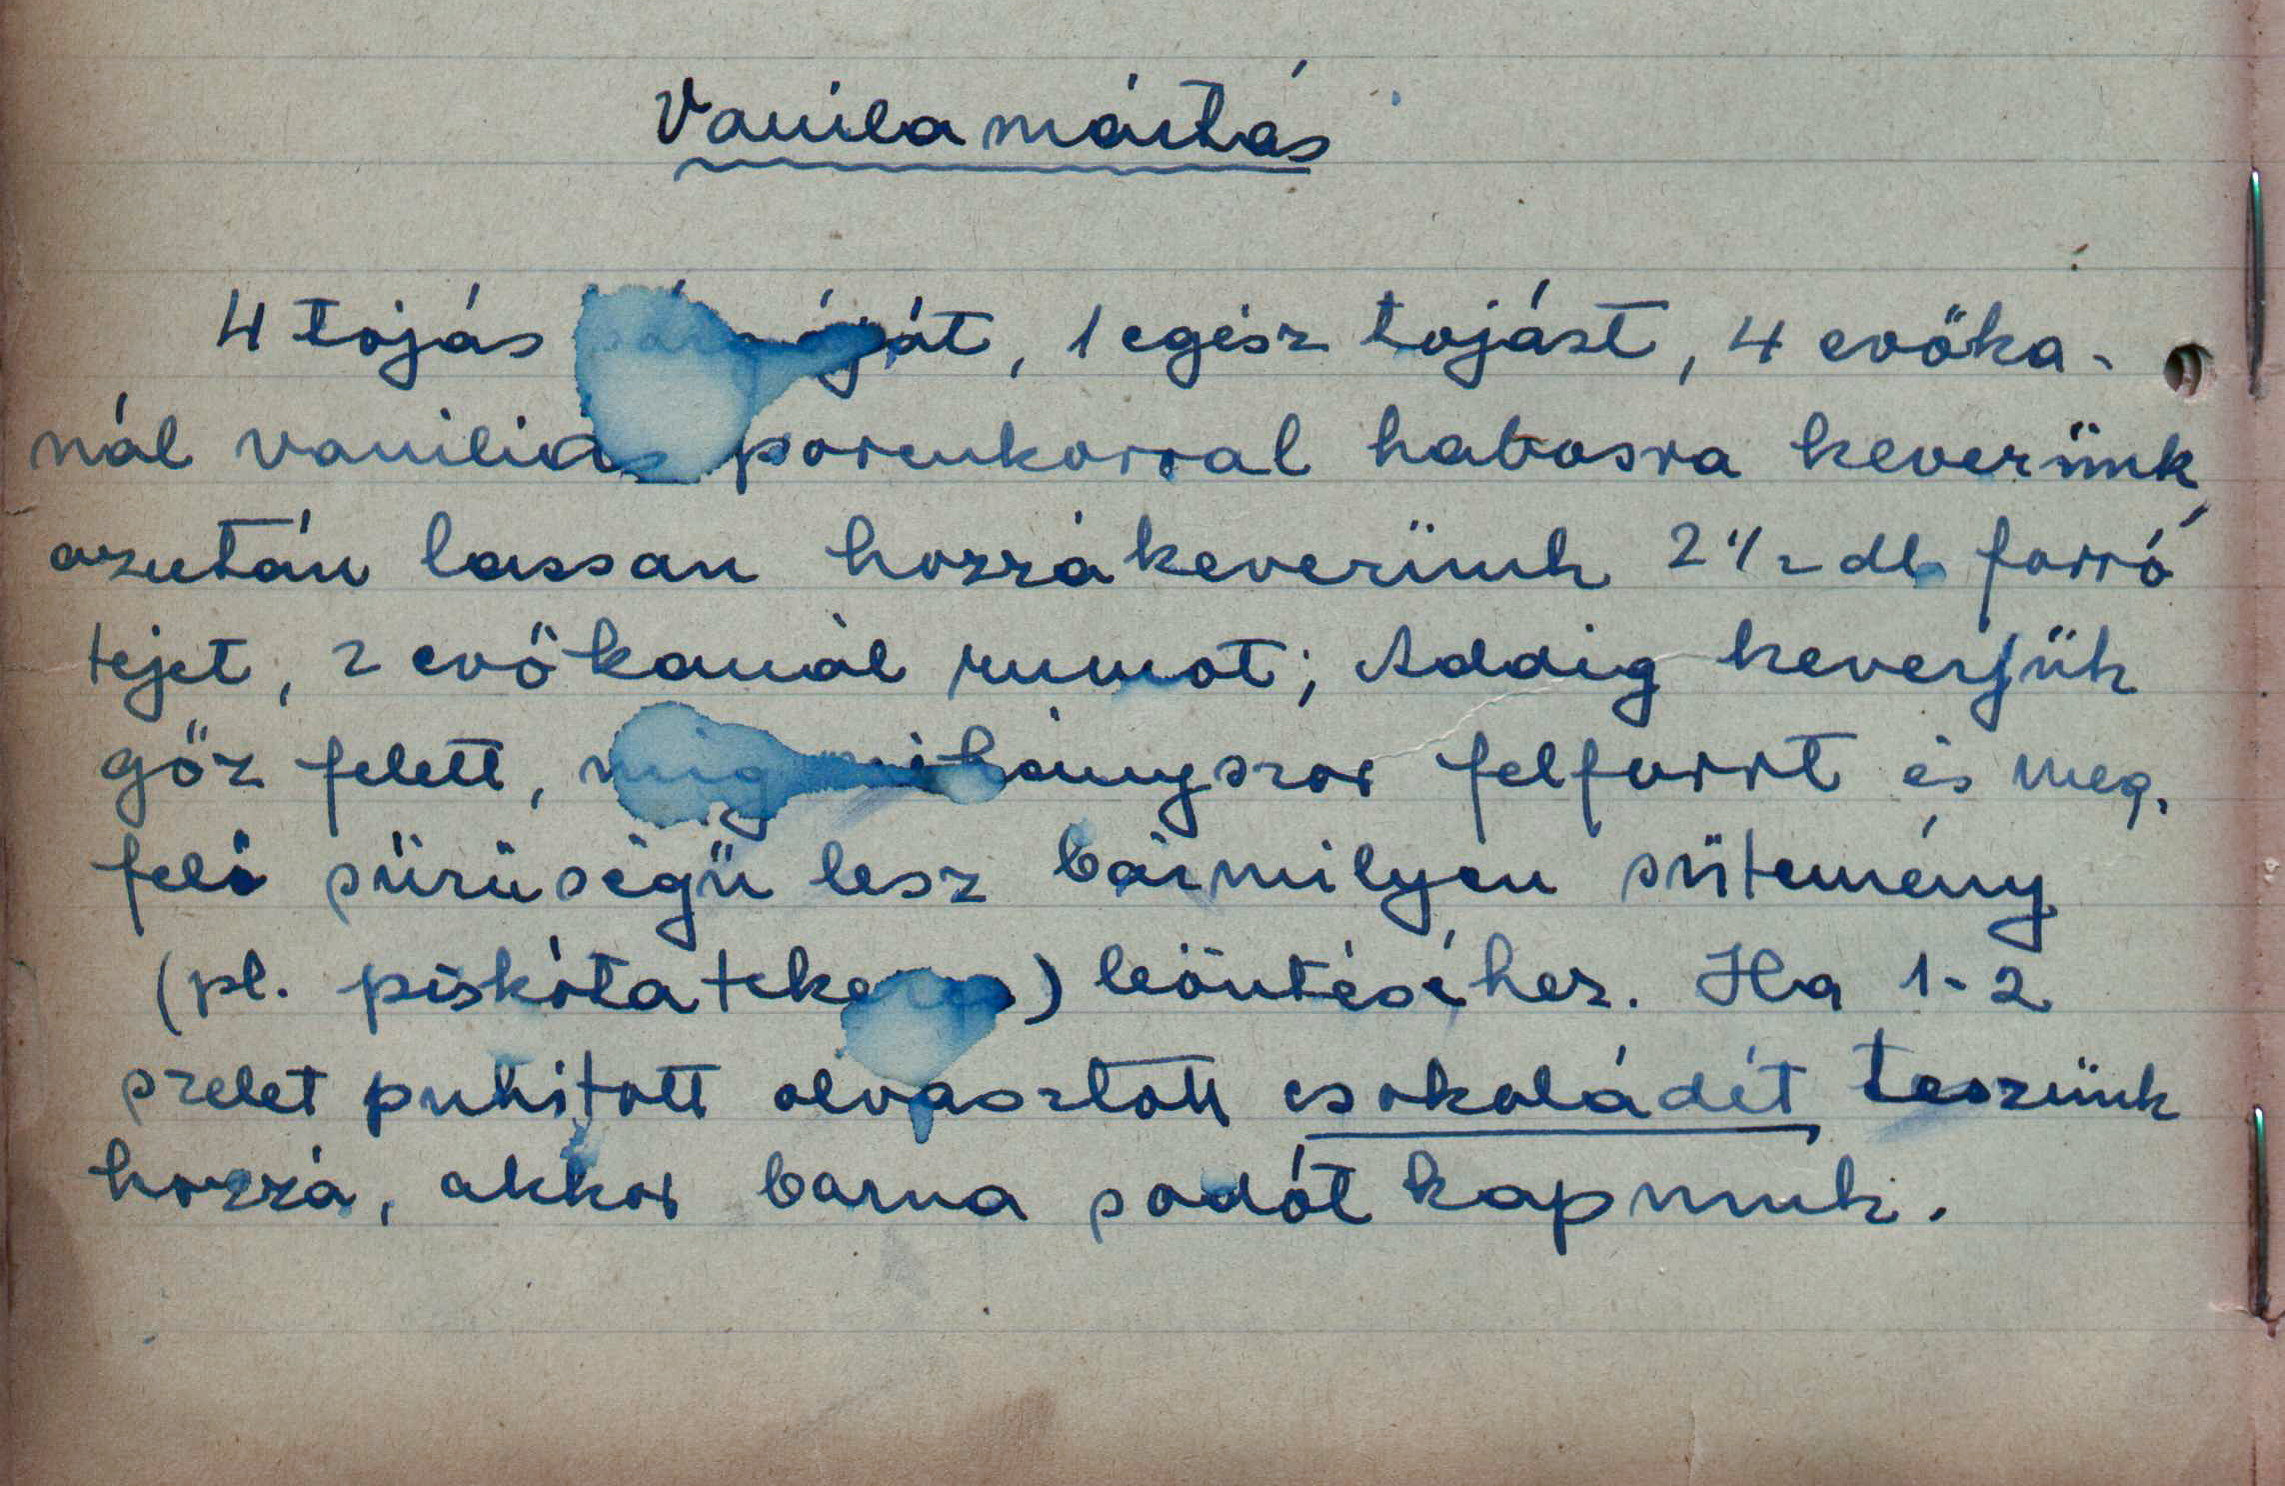 Vanila mártás
4 tojás sárgáját, 1 egész tojást, 4 evőka-
nál vaniliás porcukorral habosra keverünk,
azután lassan hozzákeverünk 2 1/2 dl forró
tejet, 2 evőkanál rumot; Addig keverjük
gőz felett, míg néhányszor felforrt és meg-
felő sürüségü lesz bármilyen sütemény
(pl. piskóta tekercs) leöntéséhez. Ha 1-2
szelet puhitott olvasztott csokoládét teszünk
hozzá, akkor barna sodót kapunk.